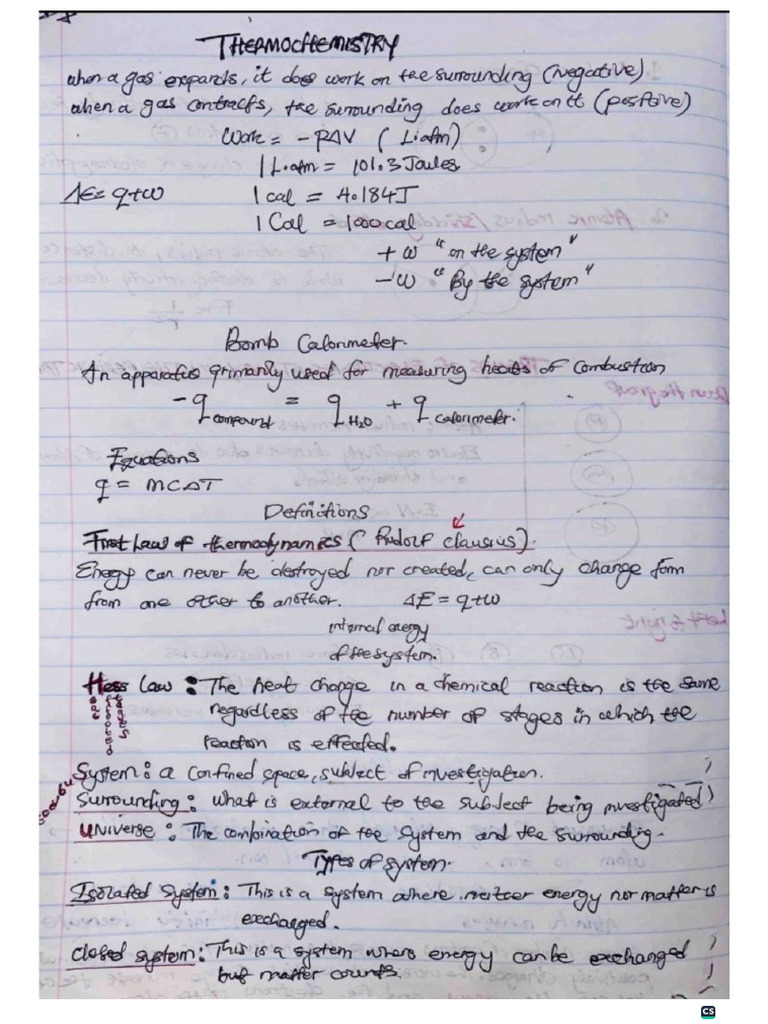 THERMOCHEMISTRY
when a gas expands, it does work on the surrounding (Negative)
when a gas contracts, the surrounding does work on it (positive)
Work = -PΔV (L.atm)
1 L.atm = 101.3 Joules
ΔE = q+w 1 cal = 4.184J
1 Cal = 1000 cal
+ w "on the system"
- w "By the system"
Bomb Calorimeter.
An apparatus primarily used for measuring heats of Combustion
-q compound = q H2O + q calorimeter.
Equations
q = mcΔT
Definitions
First Law of thermodynamics (Rudolf clausius).
Energy can never be destroyed nor created, can only change form
from one other to another. ΔE = q+w
internal energy
of the system.
Hess Law : The heat change in a chemical reaction is the same
regardless of the number of stages in which the
reaction is effected.
System: a confined space, subject of investigation.
Surrounding: what is external to the subject being investigated
Universe: The combination of the system and the surrounding.
Types of system.
Isolated System: This is a system where neither energy nor matter is
exchanged.
Closed system: This is a system where energy can be exchanged
but matter counts.
CS